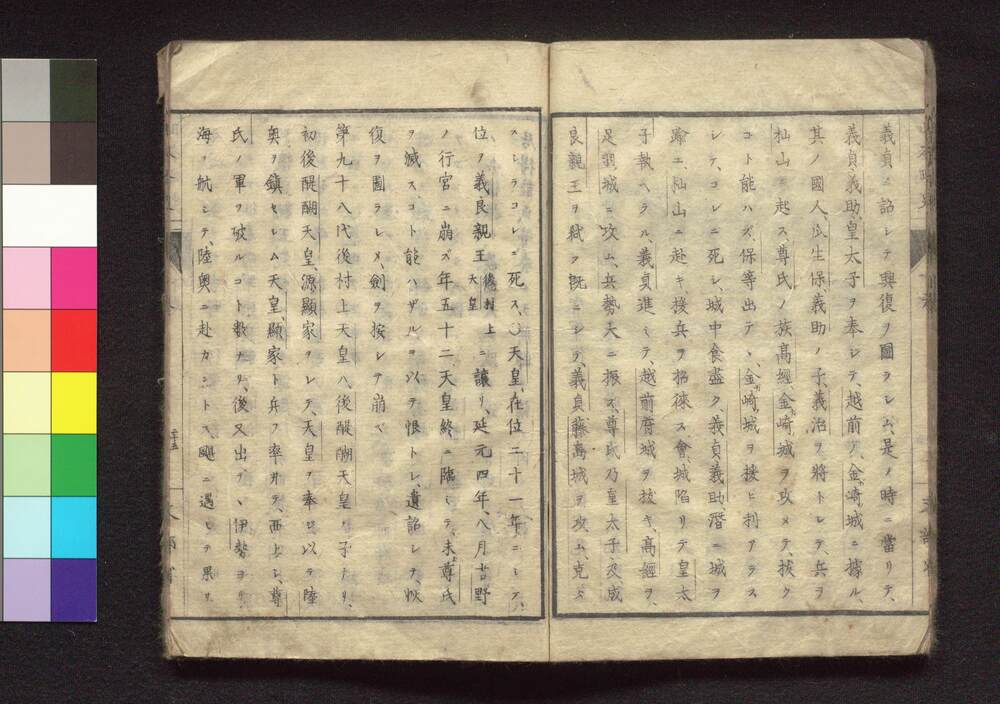 義貞ニ詔シテ興復ヲ圖ラシム、是ノ時ニ當リテ、
義貞義助、皇太子ヲ奉シテ、越前ノ金崎城ニ據ル、
其ノ國人、瓜生保、義助ノ子、義治ヲ將トシテ、兵ヲ
杣山ニ起ス、尊氏ノ族高經、金崎城ヲ攻メテ、拔ク
コト能ハズ、保等出テヽ、金崎城ヲ援ヒ利アラス
シテ、コレニ死シ、城中食盡ク、義貞義助、潛ニ城ヲ
踰エ、杣山ニ赴キ、援兵ヲ招徠ス、會城陷リテ皇太
子執ヘラル、義貞進ミテ、越前府城ヲ拔キ、高經ヲ、
足羽城ニ攻ム、兵勢大ニ振ス、尊氏乃皇太子、及成
良親王ヲ弑ス、既ニシテ、義貞、藤島城ヲ攻ム、克タ
スシテコレニ死ス、〇天皇、在位二十一年ニシテ、
位ヲ義良親王 後村上天皇 ニ讓リ、延元四年、八月、吉野
ノ行宮ニ崩ズ、年五十二、天皇終ニ臨ミテ、未、尊氏
ヲ滅スコト能ハザルヲ以テ恨トシ、遺詔シテ、恢
復ヲ圖ラシメ、劍ヲ按シテ崩ズ
第九十八代後村上天皇ハ、後醍醐天皇ノ子ナリ、
初後醍醐天皇、源顯家ヲシテ、天皇ヲ奉シ、以テ陸
奥ヲ鎮セシム、天皇、顯家ト兵ヲ率井テ、西上シ、尊
氏ノ軍ヲ破ルコト數ナリ、後又出デヽ、伊勢ヨリ、
海ヲ航シテ、陸奥ニ赴カントス、颶ニ遇ヒテ果サ
二十五